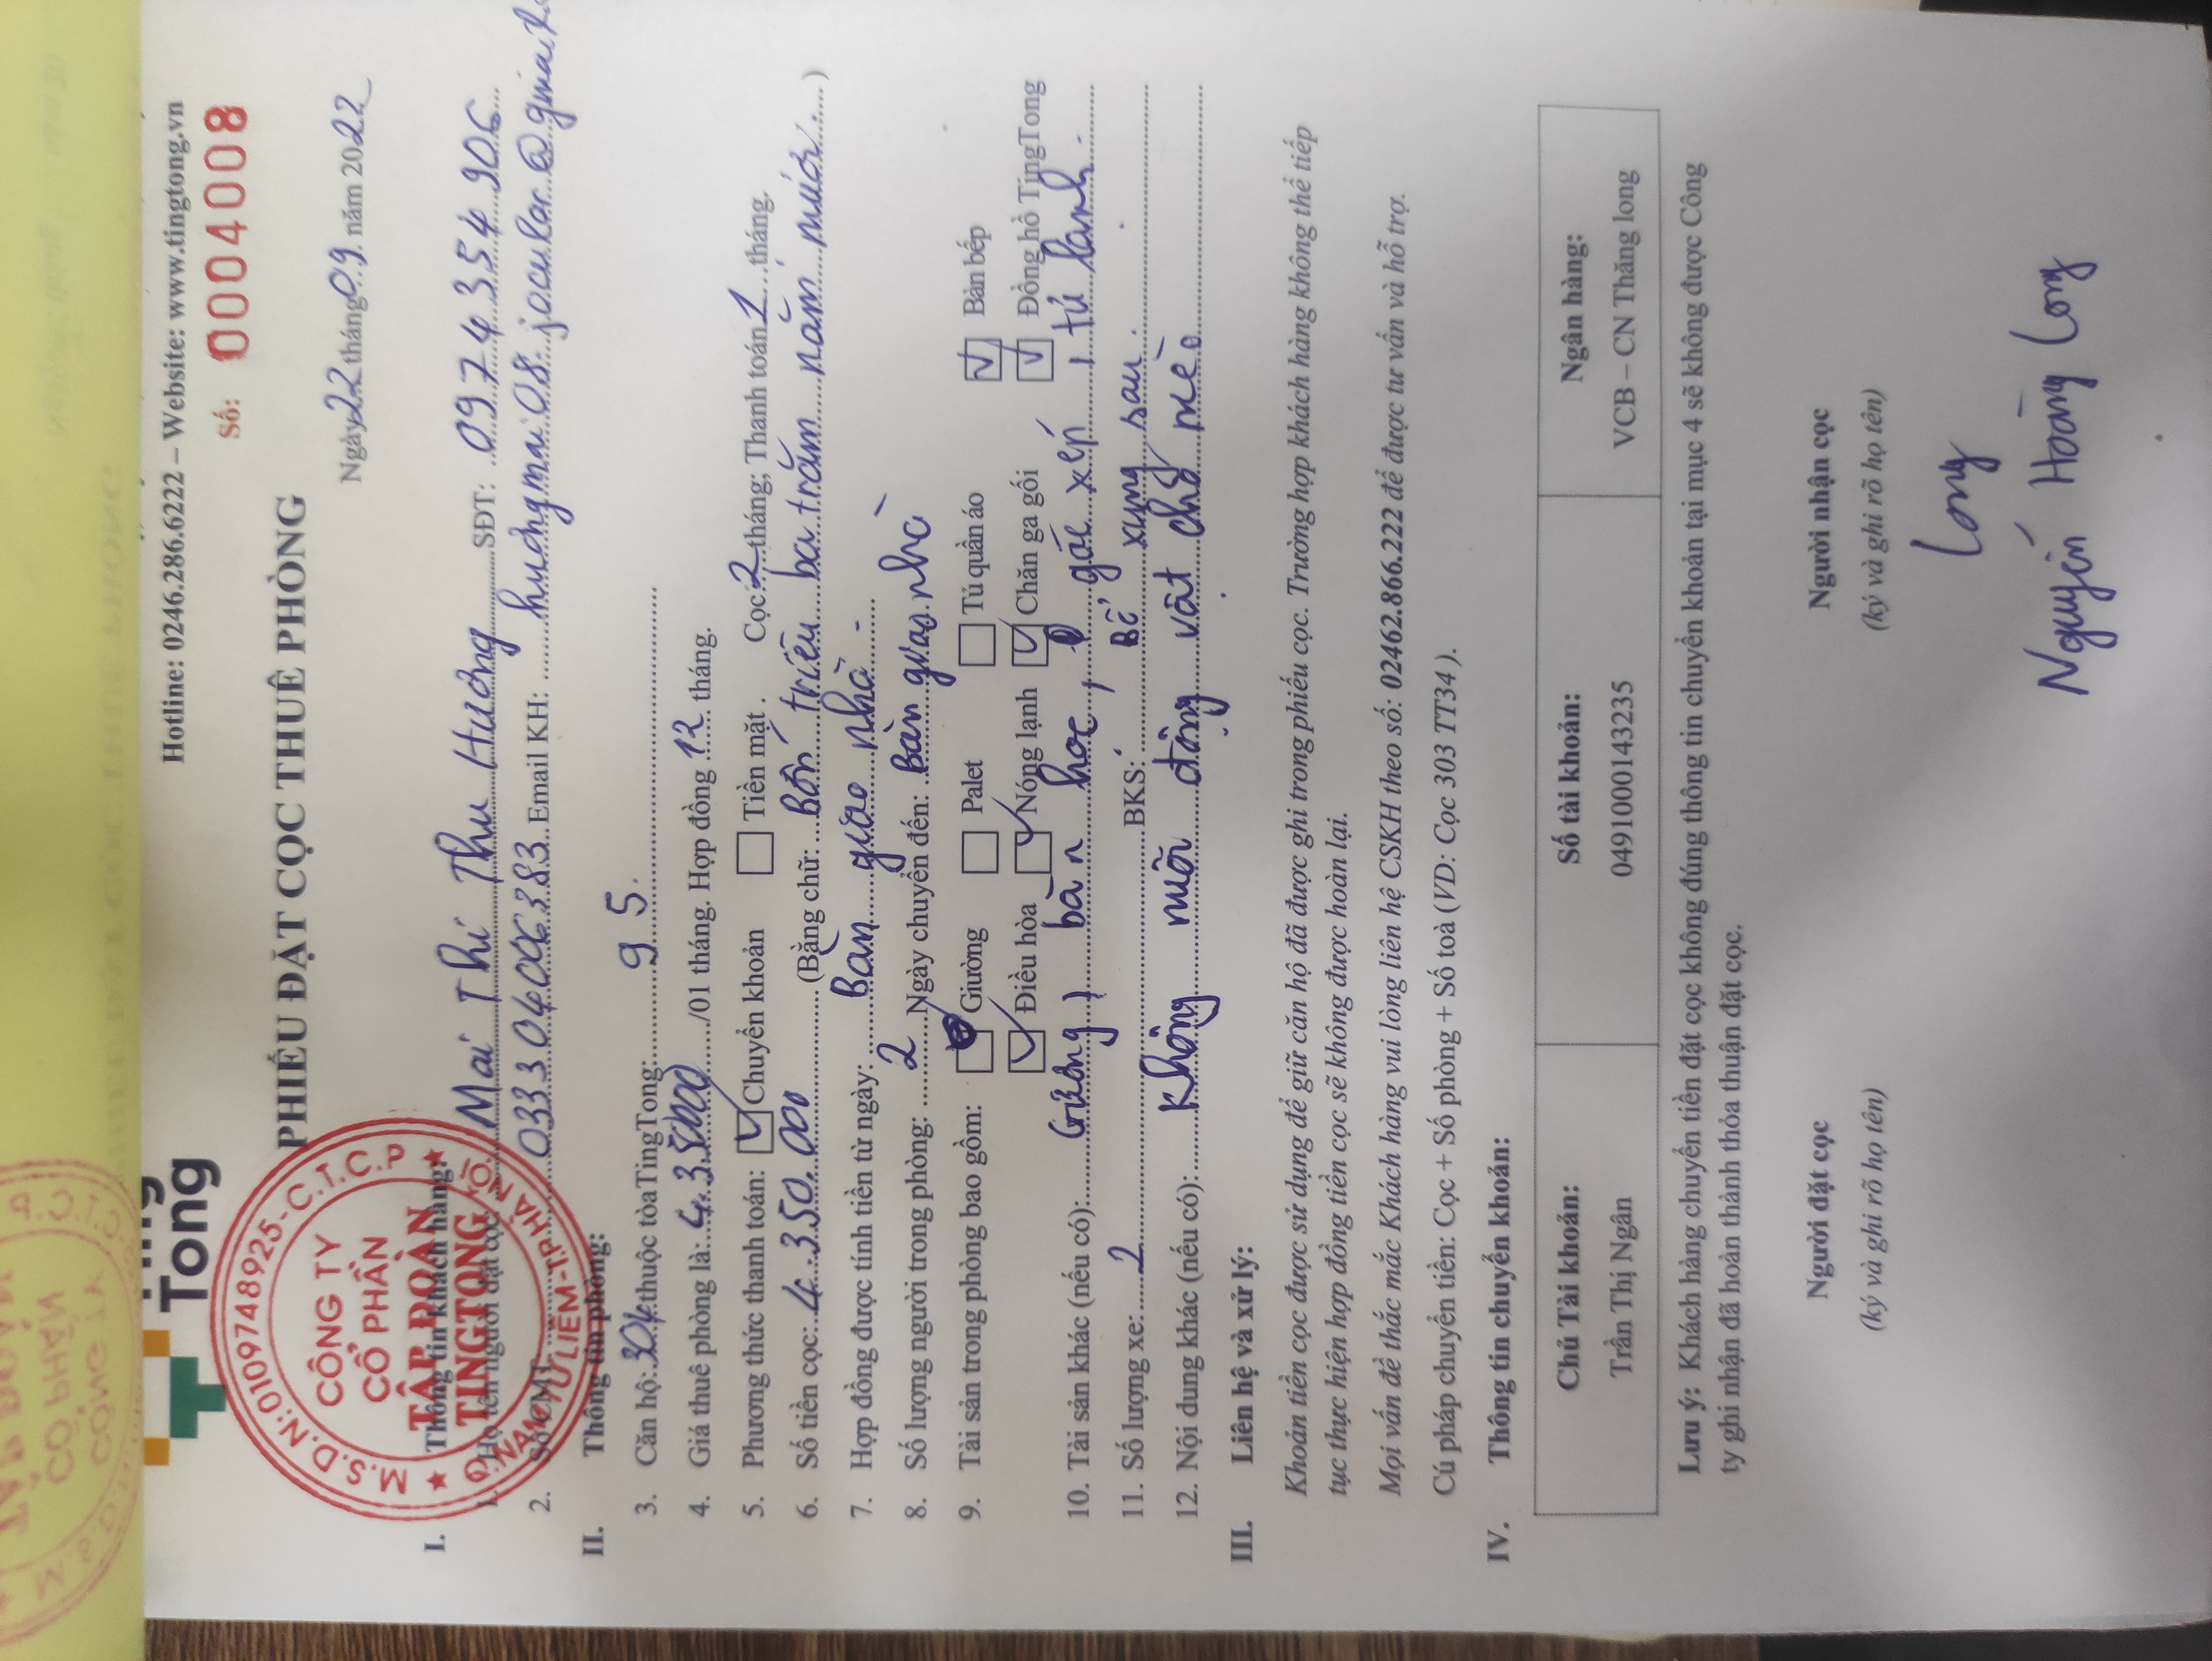 Tong
Hotline: 0246.286.6222 – Website: www.tingtong.vn
Số: 0004008
PHIẾU ĐẶT CỌC THUÊ PHÒNG
Ngày 22 tháng 09 năm 2022
M.S.D.N: 0109748925-C.T.C.P
CÔNG TY
CỔ PHẦN
TẬP ĐOÀN
TINGTONG
Q. NAM TỪ LIÊM-TP HÀ NỘI
I. Thông tin khách hàng:
1. Họ tên người đặt cọc: Mai Thi Thu Hương SĐT: 0974354906
2. Số CMT 033304006383 Email KH: huongmai08.jocukar@gmail.
II. Thông tin phòng:
3. Căn hộ: 304 thuộc tòa TingTong: 95.
4. Giá thuê phòng là: 4.35000 /01 tháng. Hợp đồng 12 tháng.
5. Phương thức thanh toán: Chuyển khoản Tiền mặt . Cọc: 2 tháng; Thanh toán 1 tháng.
6. Số tiền cọc: 4.350.000 (Bằng chữ: Bốn triệu ba trăm năm mươi. )
7. Hợp đồng được tính tiền từ ngày: Bàn giao nhà.
8. Số lượng người trong phòng: 2 Ngày chuyển đến: Bàn giao nhà
9. Tài sản trong phòng bao gồm: Giường Palet Tủ quần áo Bàn bếp
Điều hòa Nóng lạnh Chăn ga gối Đồng hồ TingTong
10. Tài sản khác (nếu có): Giường, bàn học, gác xép, tủ lạnh.
11. Số lượng xe: 2 BKS: Bổ xung sau.
12. Nội dung khác (nếu có): Không nuôi động vật chó mèo
III. Liên hệ và xử lý:
Khoản tiền cọc được sử dụng để giữ căn hộ đã được ghi trong phiếu cọc. Trường hợp khách hàng không thể tiếp
tục thực hiện hợp đồng tiền cọc sẽ không được hoàn lại.
Mọi vấn đề thắc mắc Khách hàng vui lòng liên hệ CSKH theo số: 02462.866.222 để được tư vấn và hỗ trợ.
Cú pháp chuyển tiền: Cọc + Số phòng + Số toà (VD: Cọc 303 TT34 ).
IV. Thông tin chuyển khoản:
Chủ Tài khoản: Số tài khoản: Ngân hàng:
Trần Thị Ngân 0491000143235 VCB – CN Thăng long
Lưu ý: Khách hàng chuyển tiền đặt cọc không đúng thông tin chuyển khoản tại mục 4 sẽ không được Công
ty ghi nhận đã hoàn thành thỏa thuận đặt cọc.
Người đặt cọc Người nhận cọc
(ký và ghi rõ họ tên) (ký và ghi rõ họ tên)
Long
Nguyễn Hoàng Long